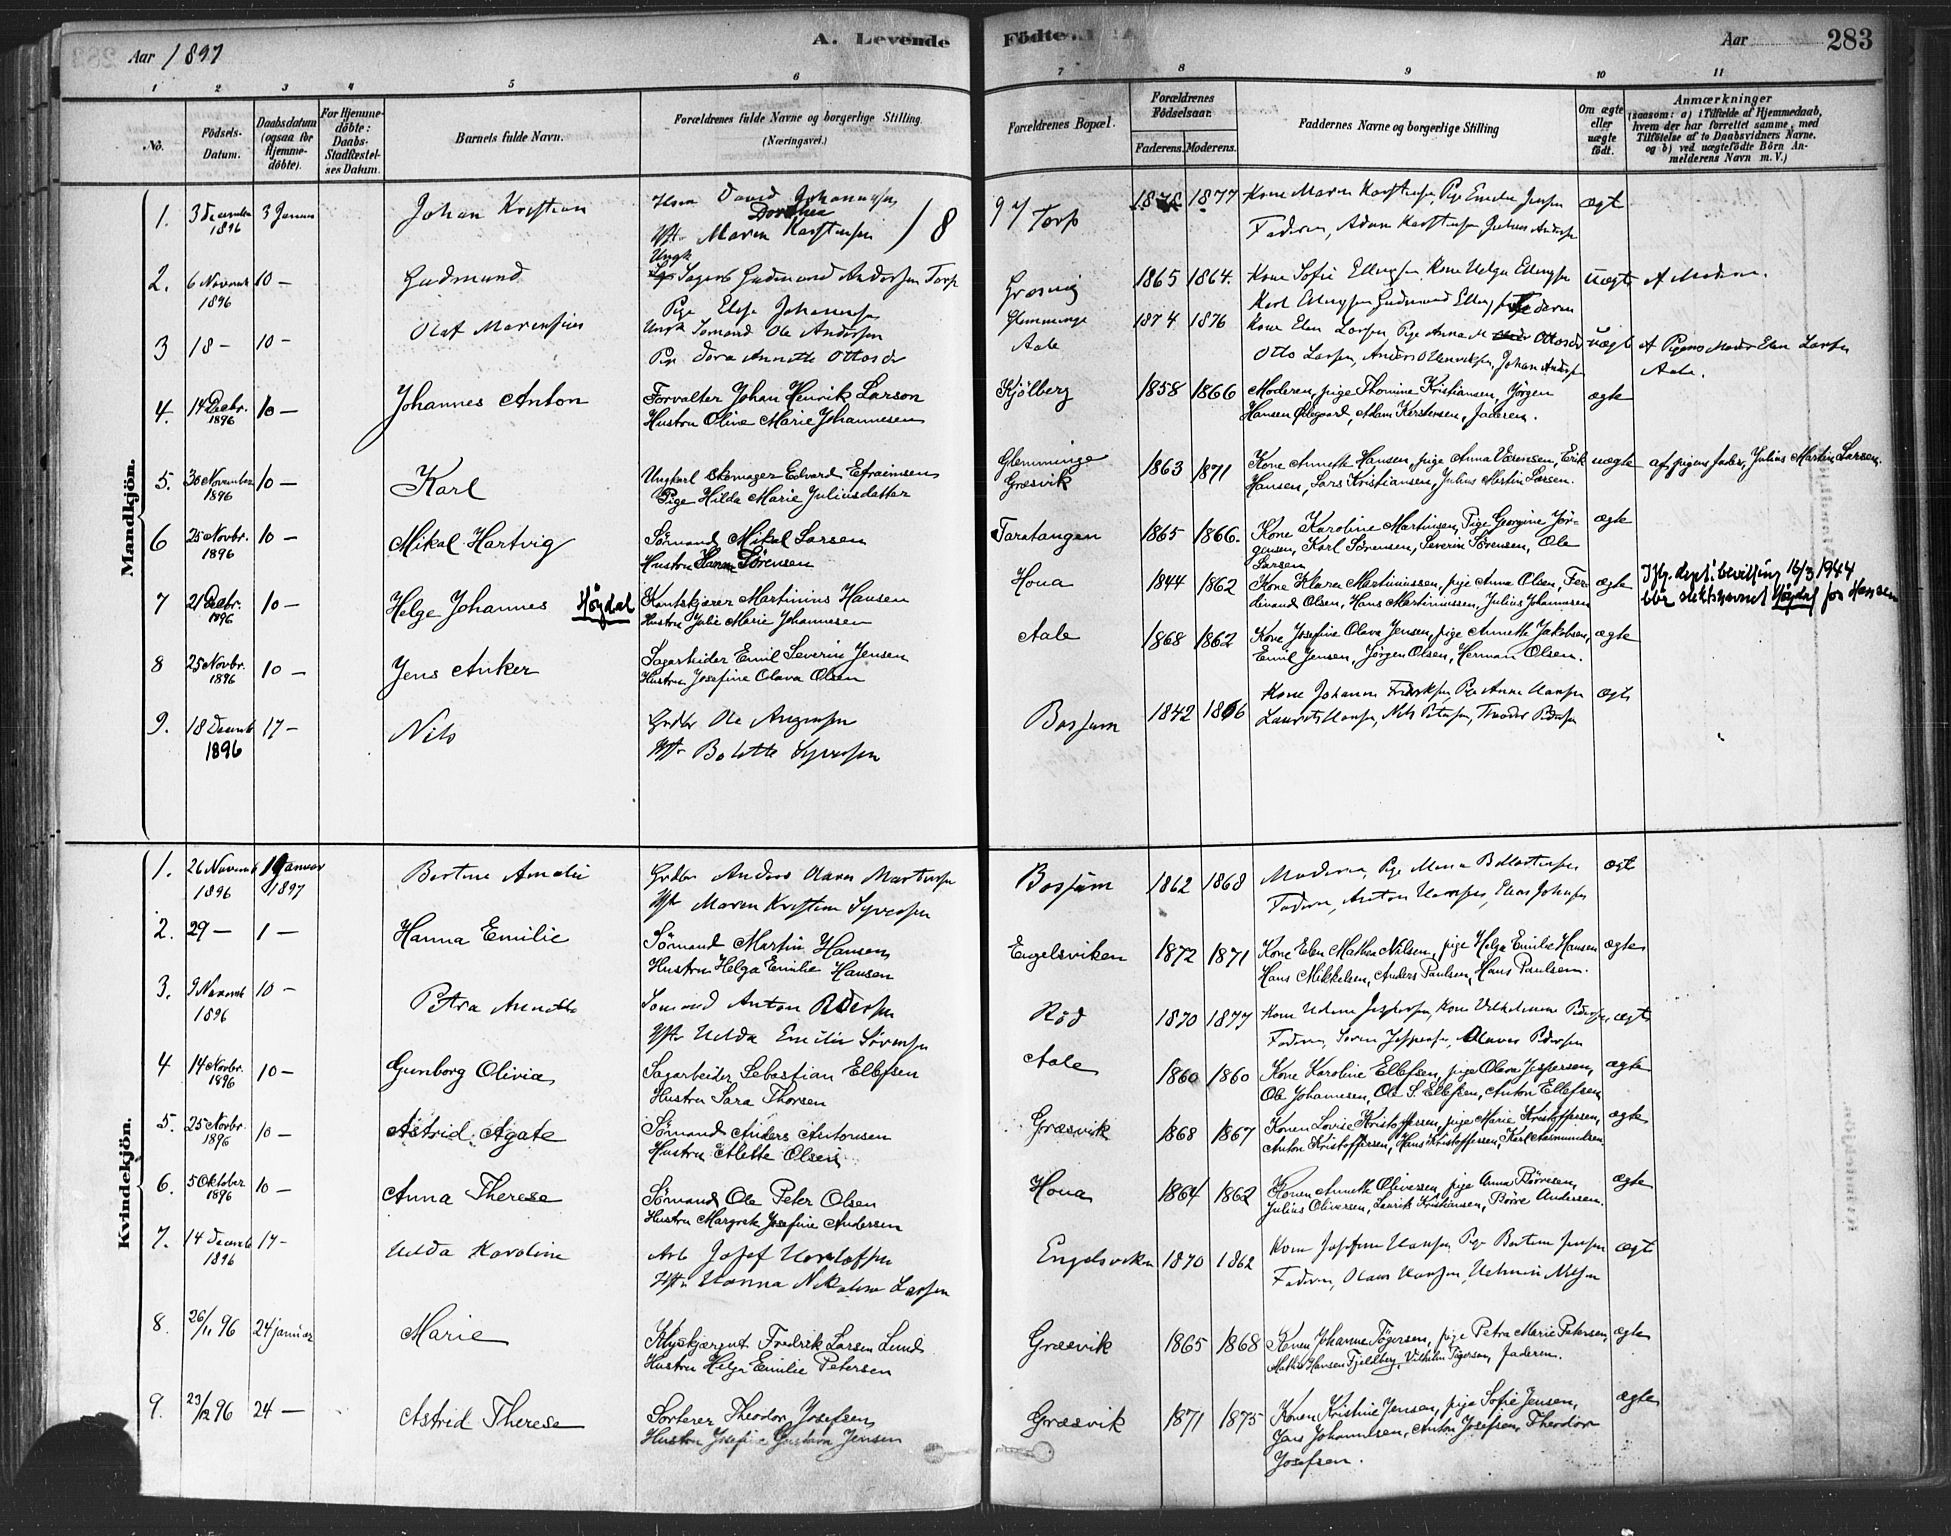 Aar 1897
A. Levende
Födte.
Aar
283
1 2 3 4 5 6 7 8 9 10 11
No.
Födsels-
Datum.
Daabsdatum
(ogsaa for
Hjemme-
döbte).
For Hjemme-
döbte:
Daabs-
Stadfæstel-
ses Datum.
Barnets fulde Navn.
Forældrenes fulde Navne og borgerlige Stilling.
(Næringsvei.)
Forældrenes Bopæl.
Forældrenes
Födselsaar.
Faderens. Moderens.
Faddernes Navne og borgerlige Stilling
Om ægte
eller
uægte
født.
Anmærkninger
(saasom: a) i Tilfælde af Hjemmedaab,
hvem der har forrettet samme, med
Tilföielse af to Daabsvidners Navne,
og b) ved uægtefödte Börn An-
melderens Navn m. V.)
Mandkjön.
1. 3 Decembr 3 Januar Johan Kristian David Johannesen Torp 1877 ægt
1896 Dorthea
Maren Karstensen
Faderen, Adam Karstensen Julius Andersen
2. 6 Novemb 10 — Gudmund Ungk Sagarb Gudmund Andersen Torp Græsvig 1865 1864. Kone Sofie Ellingsen Kone Helga Ellingsen uægt A Moderen.
1896 Pige Elise Johannesen Karl Ellingsen Gudmund Ellingsen Faderen
3 18 — 10 — Olaf Marensius Ungk Sømand Ole Andersen Glemminge 1874 1876 Kone Elen Larsen Pige Anna M Ottosdr uægt A Pigens Moder Elen Larsen
Pige Dora Annette Ottosdr Aale Otto Larsen, Anders Henriksen, Johan Andersen Aale.
4. 14 Decbr. 10 — Johannes Anton Forvalter Johan Henrik Larson Kjölberg 1858 1866 Moderen, pige Thomine Kristiansen, Jörgen ægte
1896 Hustru Oline Marie Johannesen Hansen Ødegaard, Adam Kerstensen, Faderen.
5. 30 November 10 — Karl Ungkarl Skomager Edvard Efraimsen Glemminge 1863 1871 Kone Annette Hansen, pige Anna Sørensen, Erik uægte af pigens fader, Julius Martin Larsen.
1896 Pige Hilda Marie Juliusdatter Græsvik Hansen, Lars Kristiansen, Julius Martin Larsen.
6 25 Novbr. 10 — Mikal Hartvig Sømand Mikal Larsen Taratangen 1865 1866. Kone Karoline Martinsen, Pige Georgine Jør- ægte
1896 Hustru Hanna Sørensen gensen, Karl Sørensen, Severin Sørensen, Ole
Larsen
7 21 Decbr. 10 — Helge Johannes Høydal Kontskjærer Martinius Hansen Houa 1844 1862 Kone Klara Martinussen, pige Anna Olsen, Fer- ægte Iflg. dept.s bevilling 16/3 1944
1896 Hustru Julie Marie Johannesen dinand Olsen, Hans Martinussen, Julius Johannesen blir slektsnavnet Høydal for Hansen
8 25 Novbr. 10 — Jens Anker Sagarbeider Emil Severin Jensen Aale 1868 1862 Kone Josefine Olava Jensen, pige Annette Jakobsen, ægte
1896 Hustru Josefine Olava Olsen Emil Jensen, Jörgen Olsen, Herman Olsen.
9. 18 Decemb 17 — Nils Grdbr Ole Bossum 1842 1866 Kone Johanne Fredriksen, Pige Anne Hansen ægte
1896 Hstr Bolette Syversen Laurits Hansen, Nils Petersen, Theodor Pedersen
Kvindekjön.
1. 26 Novemb 1 Januar Bertine Amalie Grdbr Anders Olaves Martinsen Bossum 1862 1868 Moderen, Pige Maria ægt
1896 1897 Hstr Maren Kristine Syversen Faderen, Anton Hansen, Elias Johnsen
2. 29 — 1 — Hanna Emilie Sømand Martin Hansen Engelsviken 1872 1871 Kone Elen Mathea Nilsen, pige Helga Emilie Hansen ægte
Hustru Helga Emilie Hansen Hans Mikkelsen, Anders Paulsen, Hans Paulsen.
3. 9 Novemb 10 — Petra Annette Sømand Anton Pedersen Rød 1870 1877 Pedersen, ægte
1896 Hstr Hilda Emilie Sørensen Faderen, Søren Jespersen, Olaves Pedersen
4 14 Novbr. 10 — Gunborg Olivia Sagarbeider Sebastian Ellefsen Aale 1860 1860 Kone Karoline Ellefsen, pige Olava Jespersen, ægte
1896 Hustru Sara Thorsen Ole Johannesen, Ole S. Ellefsen, Anton Ellefsen
5. 25 Novbr. 10 — Astrid Agate Sømand Anders Antonsen Græsvik 1868 1867 Konen Lovise Kristoffersen, pige Marie Kristoffersen, ægte
1896 Hustru Alette Olsen Anton Kristoffersen, Hans Kristoffersen, Karl Aasmundsen
6. 5 Oktober 10 — Anna Therese Sømand Ole Peter Olsen Houa 1864 1862 Konen Annette Oliversen, pige Anna Börresen, ægte
1896 Hustru Margrete Josefine Andersen Julius Oliversen, Laurits Kristiansen, Börre Andersen.
7. 14 Decemb 17 — Hilda Karoline Arb Josef Engelsviken 1870 1862 Kone Josefine Hansen, Pige Bertine Jensen ægt
1896 Hstr Hanna Nikoline Larsen Faderen, Olaus Hansen, Nilsen
8. 26/11 96 24 januar Marie Fredrik Larsen Lund Græsvik 1865 1868 Konen Johanne Tögersen, pige Petra Marie Petersen, ægte
Hustru Helga Emilie Petersen Mathis Hansen Fjeldberg, Vilhelm Tögersen, Faderen.
9. 23/12 96 24 — Astrid Therese Sorterer Theodor Josefsen Græsvik 1871 1875 Konen Kristine Jensen, pige Sofie Jensen, ægte
Hustru Josefine Gustava Jensen Johannesen, Anton Josefsen, Theodor
Josefsen.